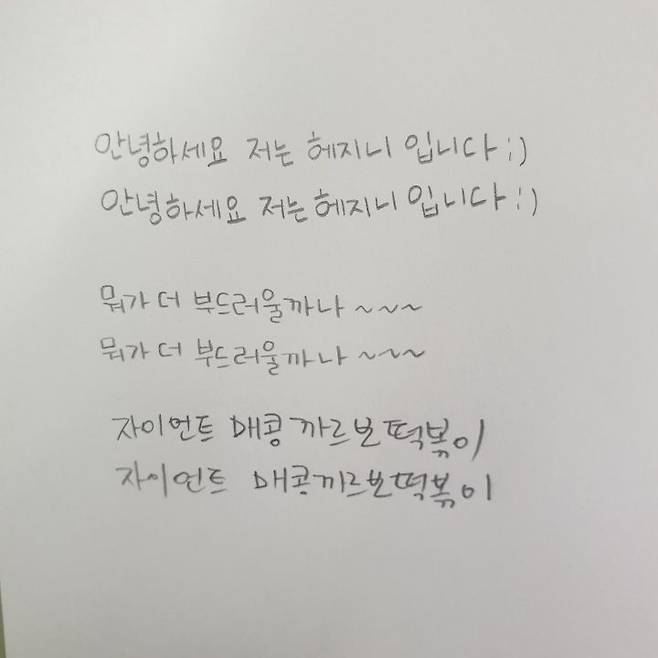 안녕하세요 저는 헤지니 입니다 ;)
안녕하세요 저는 헤지니 입니다 ;)
뭐가 더 부드러울까나 ~~~
뭐가 더 부드러울까나 ~~~
자이언트 매콩 까르보떡볶이
자이언트 매콩까르보떡볶이